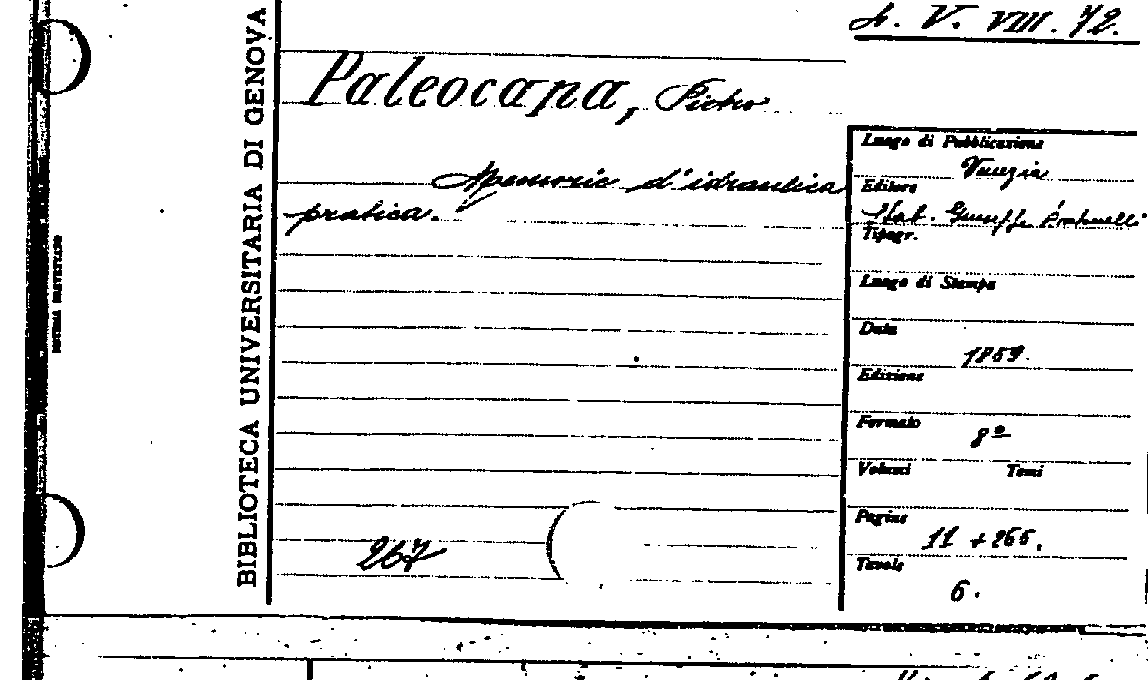 A. V. VIII. 72.
BIBLIOTECA UNIVERSITARIA DI GENOVA
SISTEMA BREVETTATO
Paleocapa, Pietro
Memorie d'idraulica
pratica.
267
Luogo di Pubblicazione
Venezia
Editore
Stab. Giuseppe Antonelli
Tipogr.
Luogo di Stampa
Data
1859.
Edizione
Formato
8º
Volumi Tomi
Pagine
11 + 266.
Tavole
6.